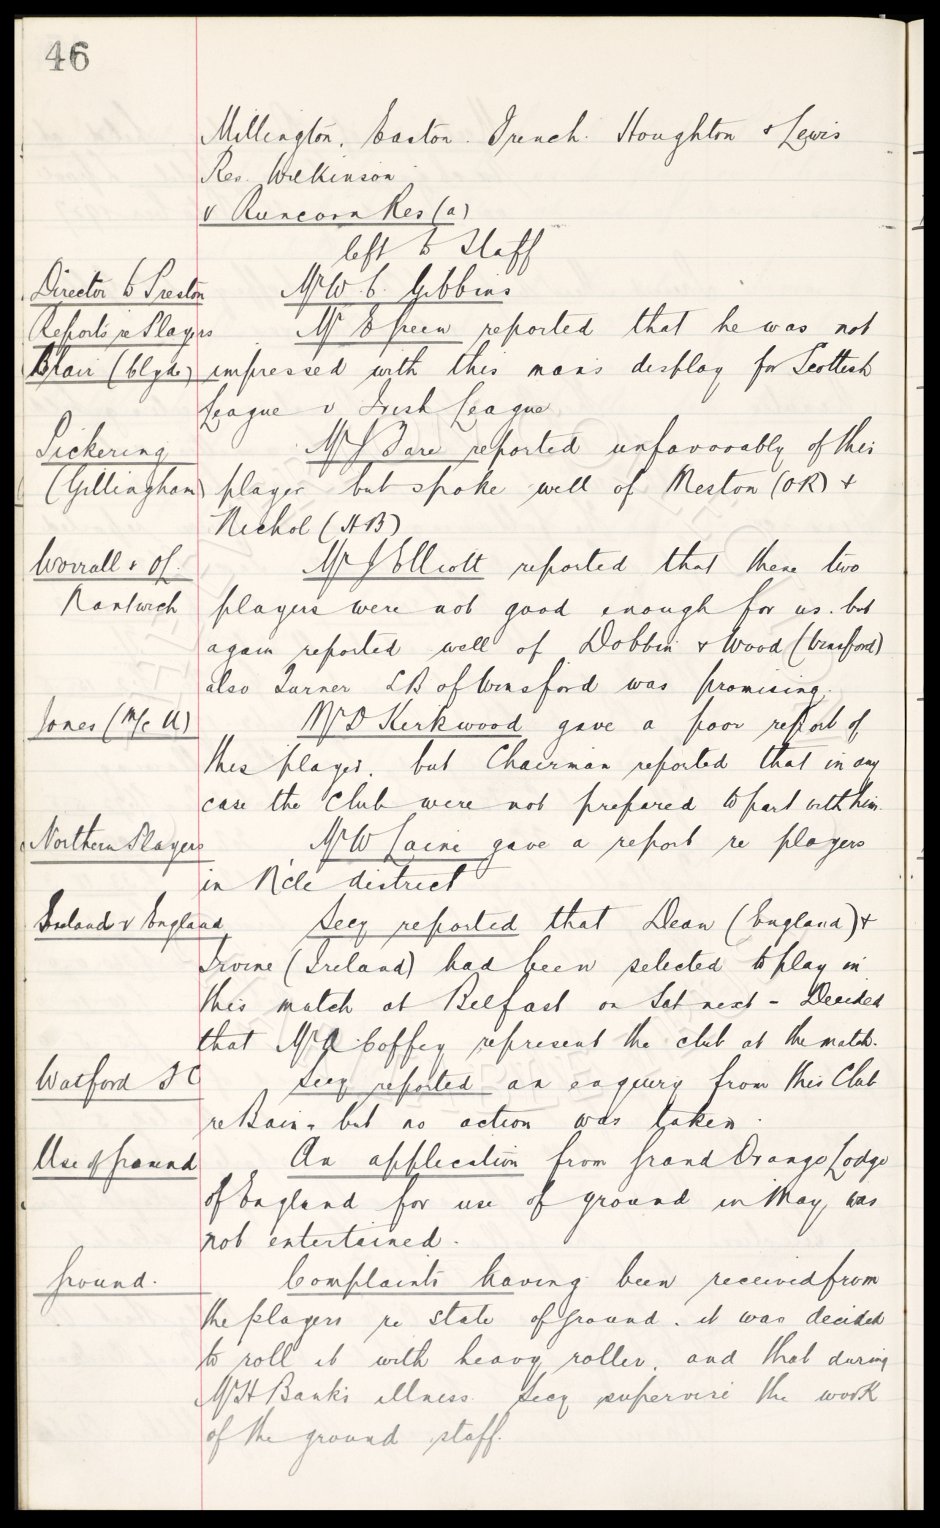 46
Millington. Easton. French. Houghton & Lewis
Res. Wilkinson
v Runcorn Res (a)
left to Staff
Director to Preston Mr W. C. Gibbins
Reports re Players Mr E Green reported that he was not
Blair (Clyde) impressed with this mans display for Scottish
League v Irish League
Pickering Mr J Fare reported unfavorably of this
(Gillingham) player but spoke well of Meston (OR) &
Nichol (HB)
Worrall & OL. Mr J Elliott reported that these two
Nantwich players were not good enough for us. but
again reported well of Dobbin & Wood (Winsford)
also Turner LB of Winsford was promising.
Jones (M/c U) Mr D Kirkwood gave a poor report of
this player. but Chairman reported that in any
case the Club were not prepared to part with him.
Northern Players Mr W Laine gave a report re players
in N'cle district
Ireland v England Secy reported that Dean (England) &
Irvine (Ireland) had been selected to play in
this match at Belfast on Sat next - Decided
that Mr A. Coffey represent the club at the match.
Watford FC Secy reported an enquiry from this Club
re Bain. but no action was taken.
Use of Ground An application from Grand Orange Lodge
of England for use of ground in May, was
not entertained.
Ground. Complaints having been received from
the players re state of ground. it was decided
to roll it with heavy roller. and that during
Mr H Banks illness. Secy supervise the work
of the ground staff.